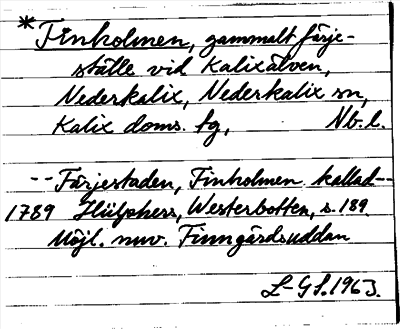 * Finholmen, gammalt färje-
ställe vid Kalixälven,
Nederkalix, Nederkalix sn,
Kalix doms. tg, Nb. l.
-- Färjestaden, Finholmen kallad --
1789 Hülphers, Westerbotten, s. 189.
Möjl. nuv. Finngärdsuddan
L-GS. 1963.